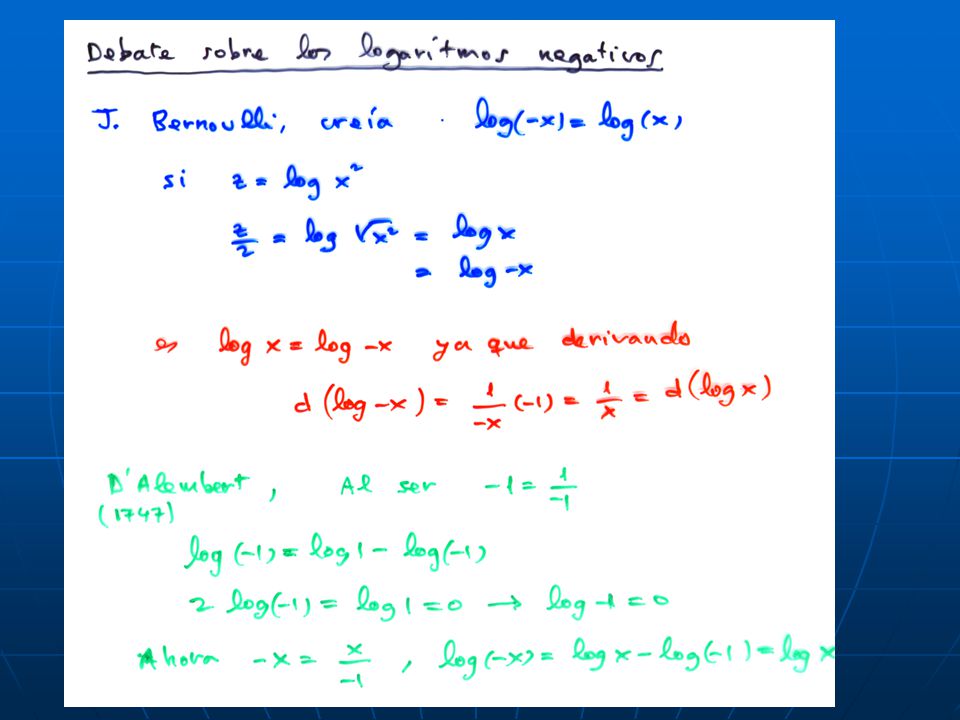 Debate sobre los logarítmos negativos
J. Bernoulli, creía . log(-x) = log(x)
si z = log x²
z/2 = log √x² = log x
= log -x
es log x = log -x ya que derivando
d(log -x) = 1/-x (-1) = 1/x = d(log x)
D'Alembert, Al ser -1 = 1/-1
(1747)
log(-1) = log 1 - log(-1)
2 log(-1) = log 1 = 0 → log -1 = 0
Ahora -x = x/-1, log(-x) = log x - log(-1) = log x